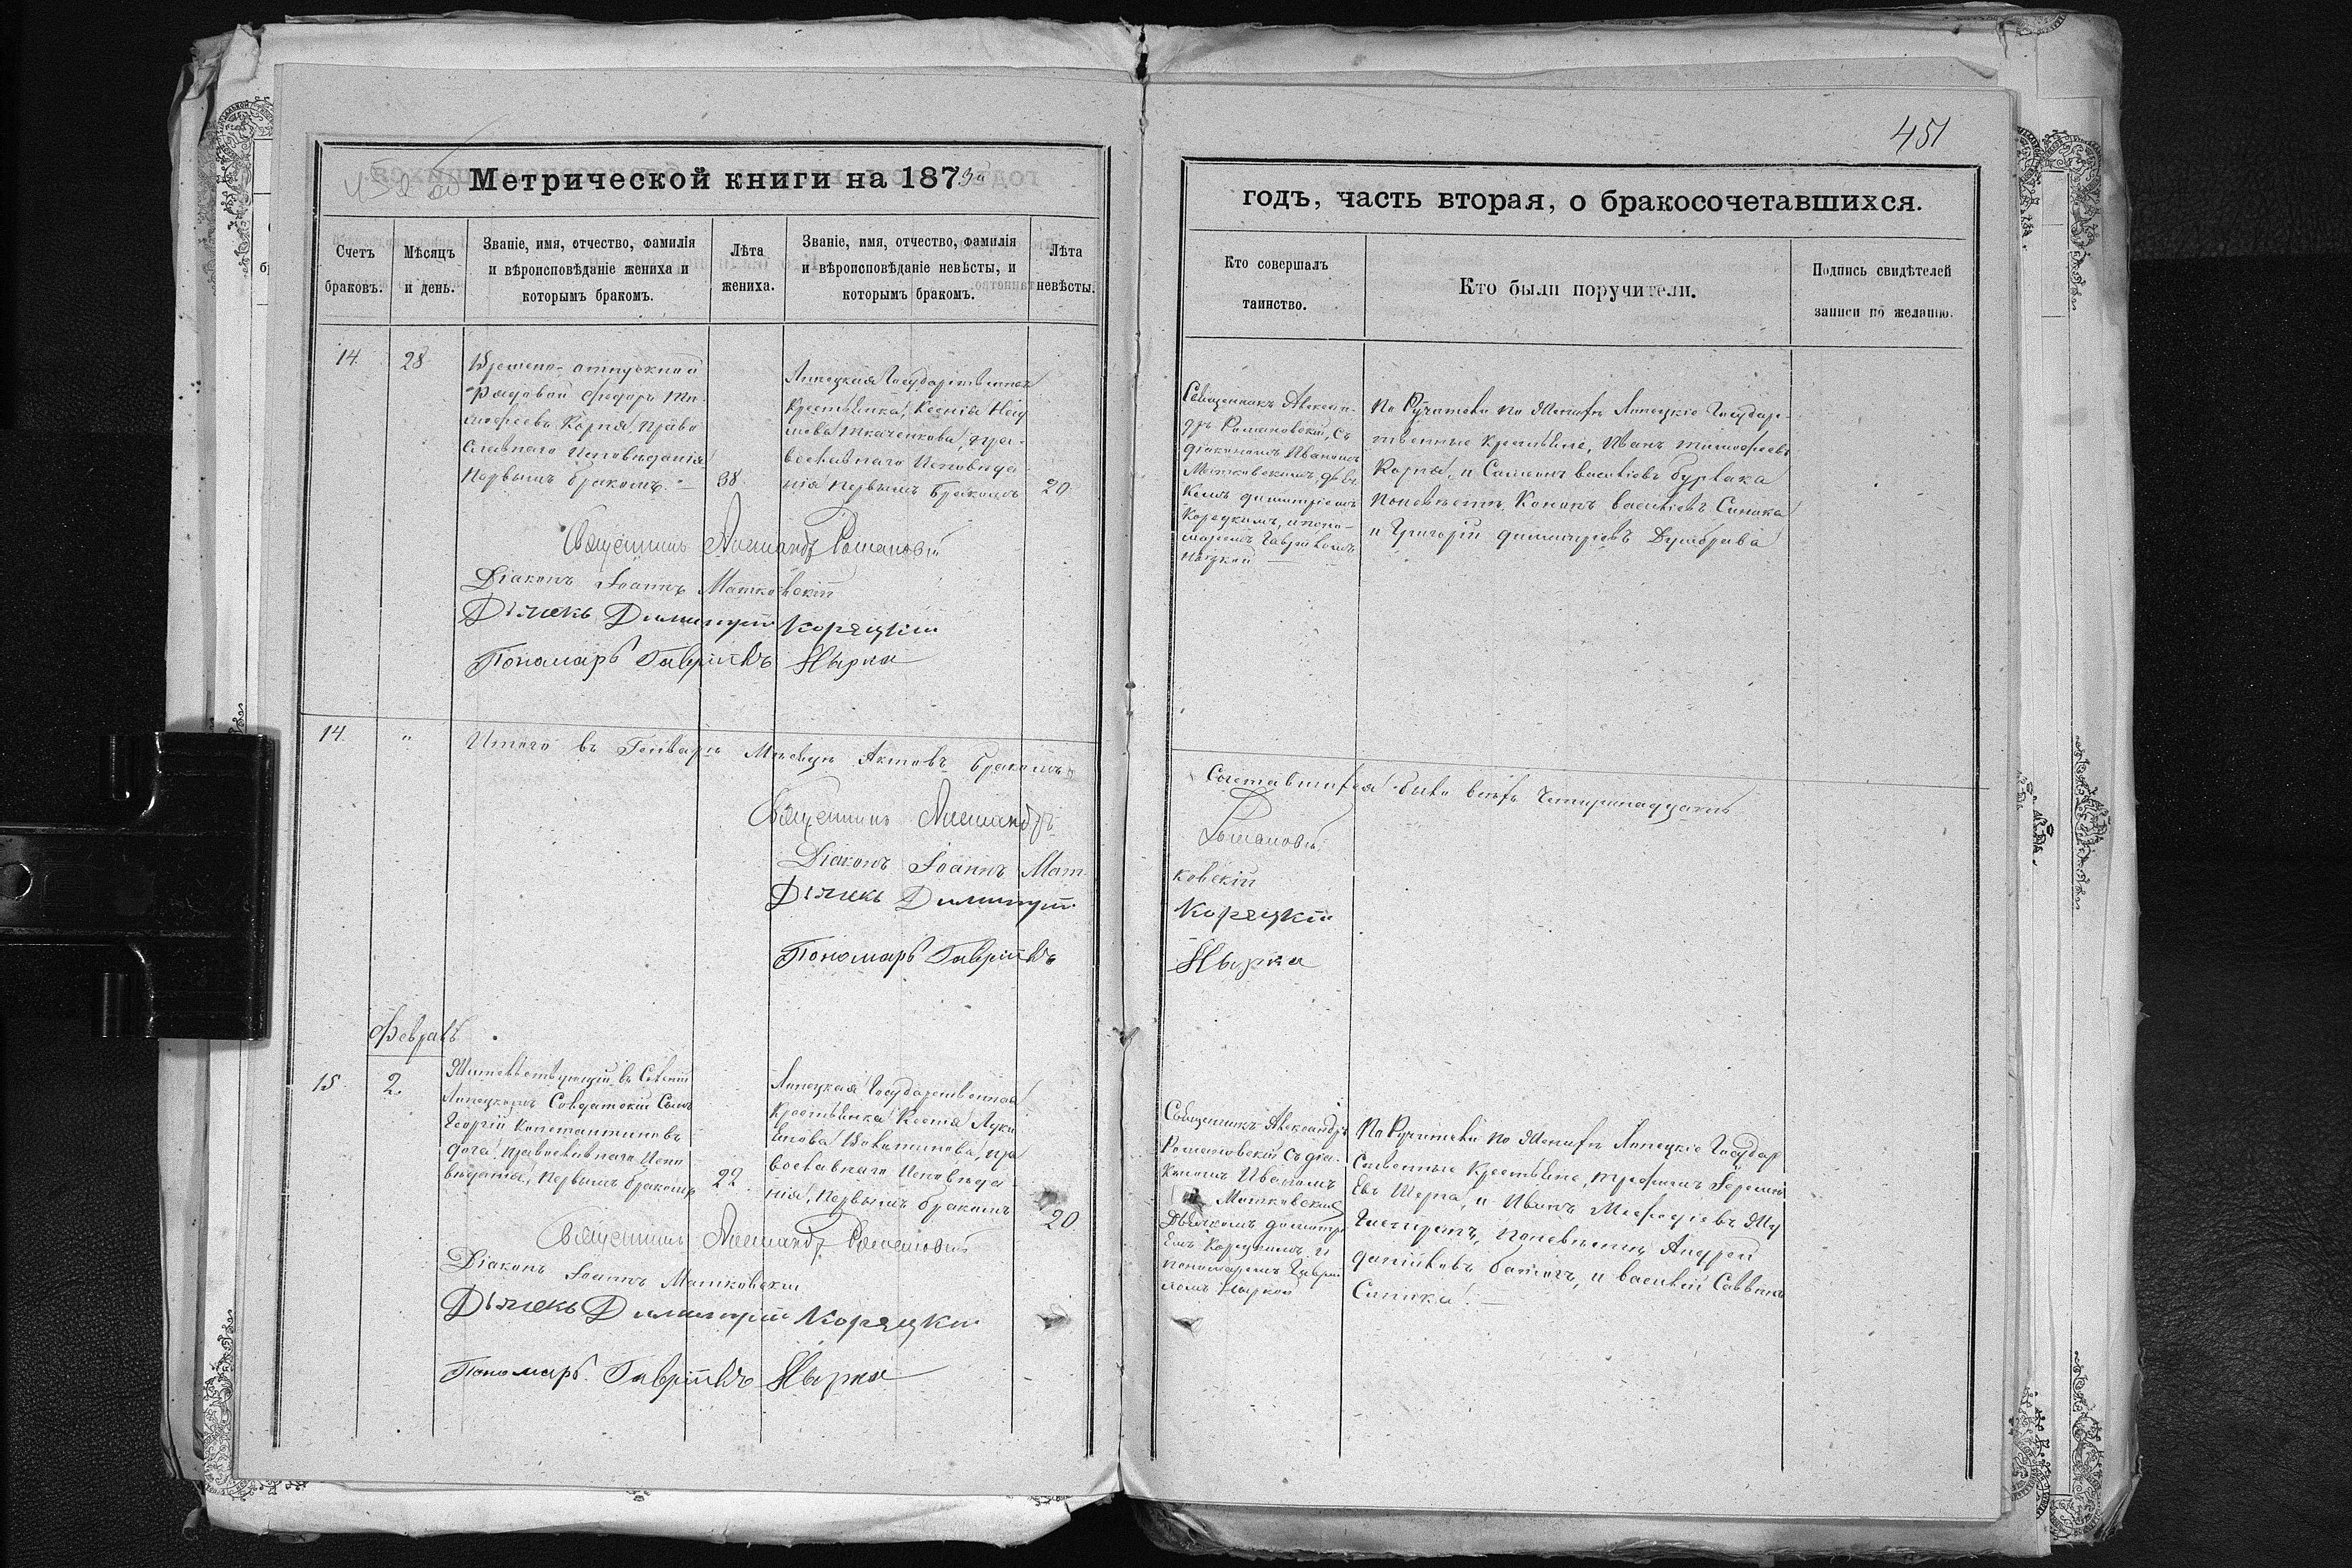 451
Метрической книги на 1873й
годъ, часть вторая, о бракосочетавшихся.
Счетъ
браковъ.
Мѣсяцъ
и день.
Званіе, имя, отчество, фамилія
и вѣроисповѣданіе жениха и
которымъ бракомъ.
Лѣта
жениха.
Званіе, имя, отчество, фамилія
и вѣроисповѣданіе невѣсты, и
которымъ бракомъ.
Лѣта
невѣсты.
Кто совершалъ
таинство.
Кто были поручители.
Подпись свидѣтелей
записи по желанію.
14.
28
Времено-отпускной
Рядовой Федоръ Ти-
мофеевъ Корня, Право
славнаго Исповѣданія
Первымъ бракомъ. —
38.
Липецкая Государственная
Крестьянка, Ксенія
Ткаченкова, пра-
вославнаго Исповѣда
нія первымъ бракомъ
20
Священникъ Алексан-
дръ Романовскій, съ
діакономъ Иваномъ
Матковскимъ, дьяч
комъ димитріемъ
Корецкимъ, и поно-
маремъ Гавріиломъ
По Ручители по Женихѣ Липецкіе Государ-
ственные крестьяне, Иванъ тимофеевъ
Корня, и Самсонъ василіевъ бурлака
поневѣстѣ, Кононъ василіевъ Синика
и Григорій димитріевъ Думбрава
Священникъ Александръ Романовскій
Діаконъ Іоаннъ Матковскій
Дьячекъ Димитрій Корецкій
Пономарь Гавріилъ Нырка
14.
"
Итого въ Генварѣ Мѣсяцѣ Актовъ бракомъ
Сочетавшихся было всѣхъ Четырнадцать
Священникъ Александръ
Романовскій
Діаконъ Іоаннъ Мат
ковскій
Дьячекъ Димитрій
Корецкій
Пономарь Гавріилъ
Нырка
Февраль
15.
2.
Жительствующій въ Селеніи
Липецкомъ Солдатскій Сынъ
Георгій Константиновъ
дога, православнаго Испо
вѣданія, первымъ бракомъ
22
Липецкая Государственная
Крестьянка Ксенія Луки
Енова пра
вославнаго Исповѣда
нія, первымъ бракомъ
20.
Священникъ Александръ
Романовскій съ діа-
кономъ Иваномъ
Матковскимъ
Дьячкомъ димитрі
Емъ Корецкимъ и
пономаремъ Гаврі
ломъ Ныркой
По Ручители по Женихѣ Липецкіе Государ
Ственные Крестьяне, трофимъ Еремі
Евъ Щерна, и Иванъ Мефодіевъ
поневѣстѣ Андрей
даніиловъ и василій Саввинъ
Синика. —
Священникъ Александръ Романовскій
Діаконъ Іоаннъ Матковскій
Дьячекъ Димитрій Корецкій
Пономарь Гавріилъ Нырка